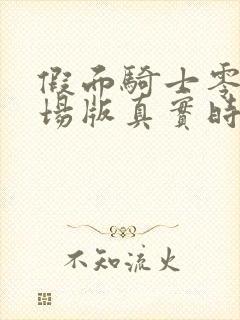 假面騎士零
場版真實時
不知流火